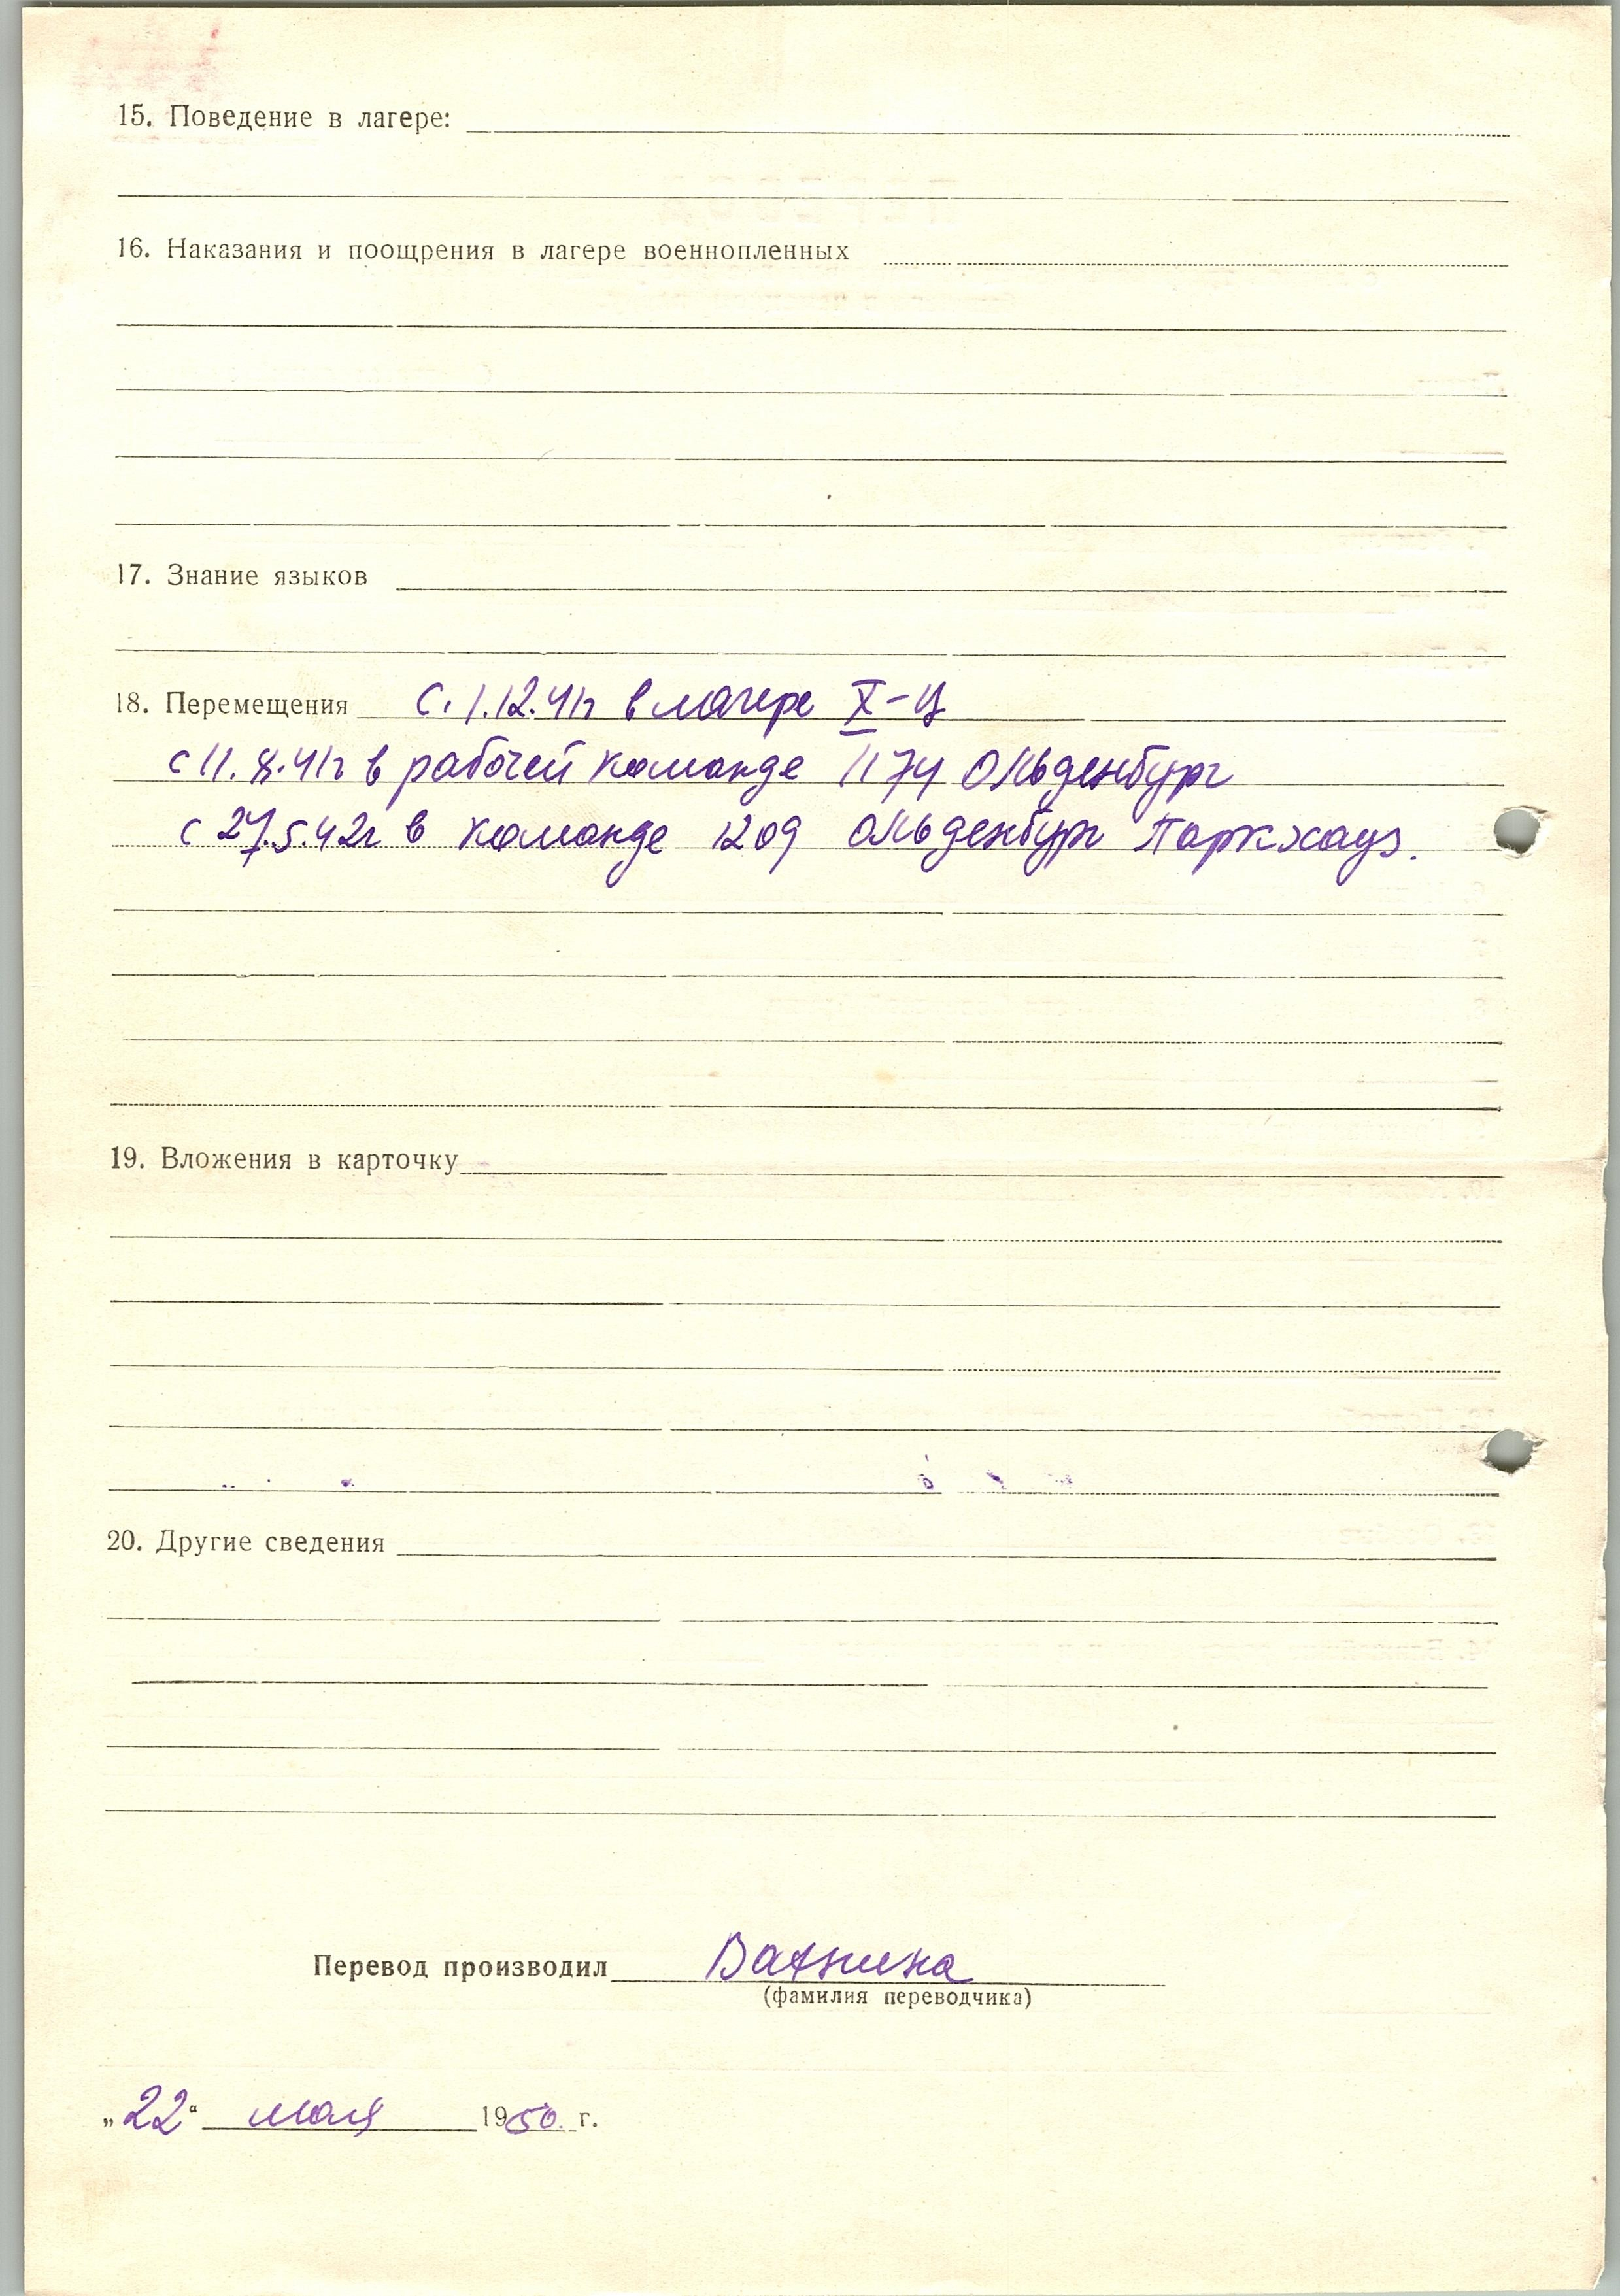 15. Поведение в лагере:
16. Наказания и поощрения в лагере военнопленных
17. Знание языков
18. Перемещения с. 1.12.41г в лагере X-Ц
с 11.8.41г в рабочей команде 1174 Ольденбург
с 27.5.42г в команде 1209 Ольденбург Паркхауз.
19. Вложения в карточку
20. Другие сведения
Перевод производил Ватнина
(фамилия переводчика)
„22“ мая 1950 г.